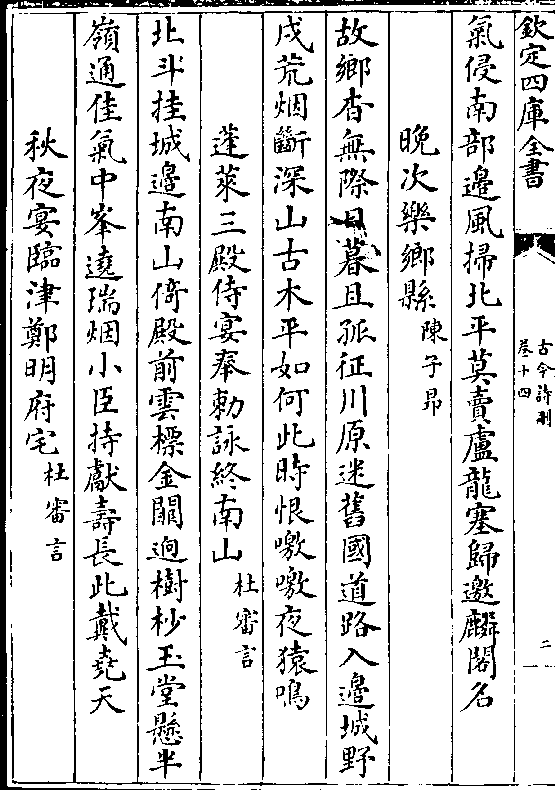 欽定四庫全書
古今詩刪
卷十四
二
氣侵南部邊風掃北平莫賣盧龍塞歸邀麟閣名
晚次樂鄉縣 陳子昂
故鄉杳無際日暮且孤征川原迷舊國道路入邊城野
戍荒烟斷深山古木平如何此時恨噭噭夜猿鳴
蓬萊三殿侍宴奉勅詠終南山 杜審言
北斗挂城邊南山倚殿前雲標金闕逈樹杪玉堂懸半
嶺通佳氣中峯遶瑞烟小臣持獻壽長此戴堯天
秋夜宴臨津鄭明府宅 杜審言